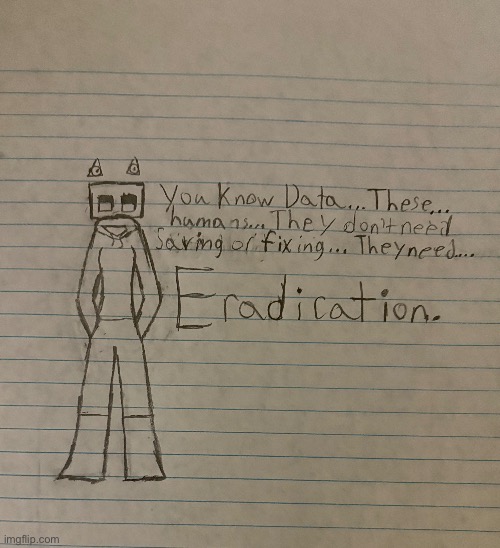 You Know Data... These...
humans... They don't need
Saving or fixing... They need...
Eradication.
imgflip.com